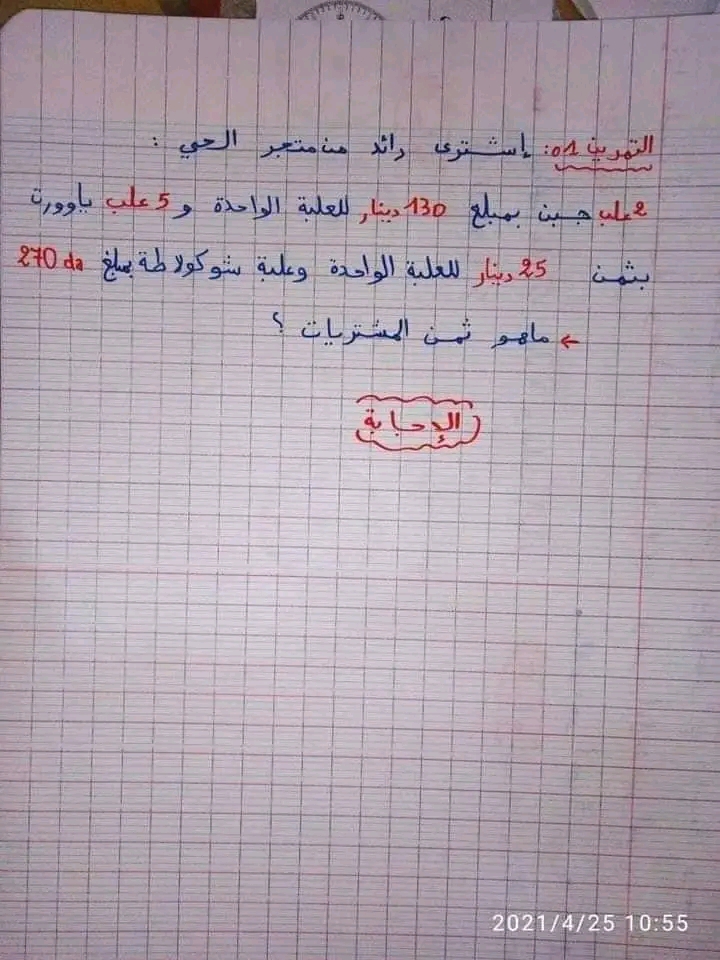 التمرين 01: إشترى رائد من متجر الحي :
2 علب جبن بمبلغ 130 دينار للعلبة الواحدة و 5 علب ياوورت
بثمن 25 دينار للعلبة الواحدة وعلبة شوكولاطة بمبلغ 270 da
← ماهو ثمن المشتريات ؟
الإجابة
2021/4/25 10:55